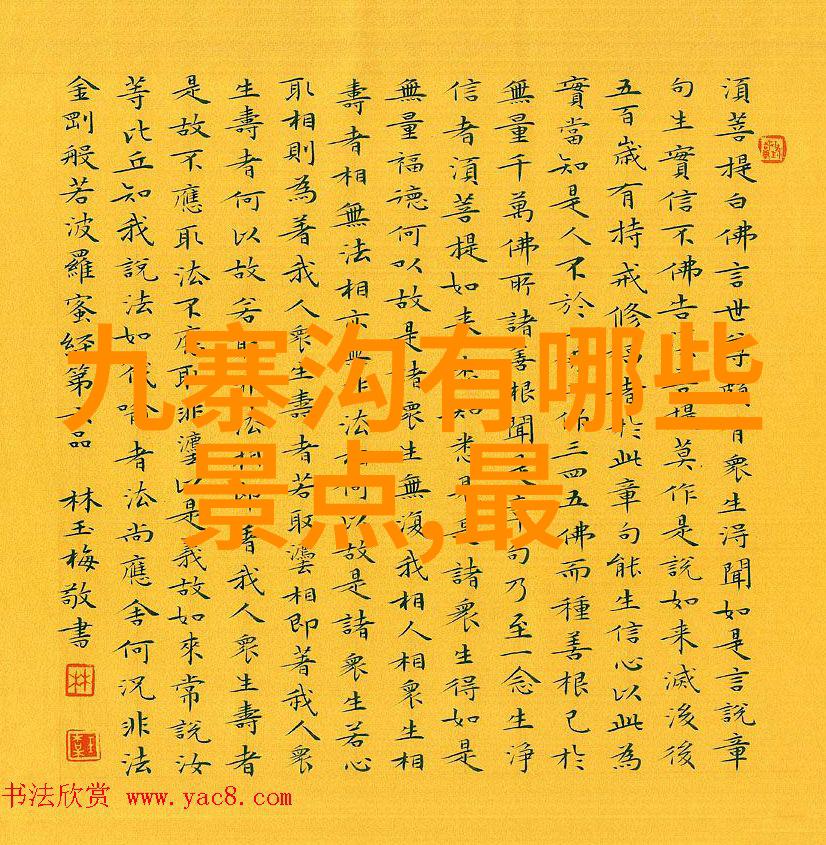 須菩提白佛言世尊頗有衆生得聞如是言說章
句生實信不佛告菩提莫作是說如来滅後後
五百歲有持戒修福者於此章句能生信心以此為
實當知是人不於佛三四五佛而種善根已於
無量千萬佛所諸善根聞是章句乃至一念生淨
信者須菩提如来悉知悉見是諸衆生得如是
無量福德何以故是諸衆生無復我相人相衆生相
壽者相無法相亦無非法相何以故是諸衆生若心
取相則為著我人衆生壽者若取法相即著我人衆
生壽者何以故若取非法相即著我人衆生壽者
是故不應取法不應取非法以是義故如來常說汝
等比丘知我說法如筏喻者法尚應舍何況非法
金剛般若波羅蜜經第六品 林玉梅敬書
林
九寨沟有哪些
景点,最
书法欣赏 www.yac8.com